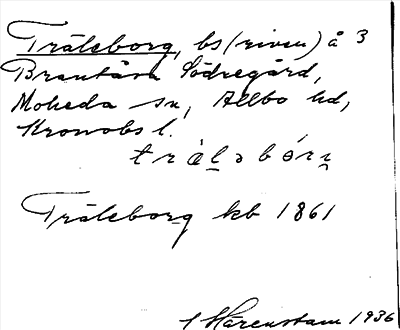 Träleborg, bs (riven) å 3
Brantåsa Södregård,
Moheda sn, Allbo hd,
Kronobs l.
träləbórɪ̯
Träleborg kb 1861
Härenstam 1936